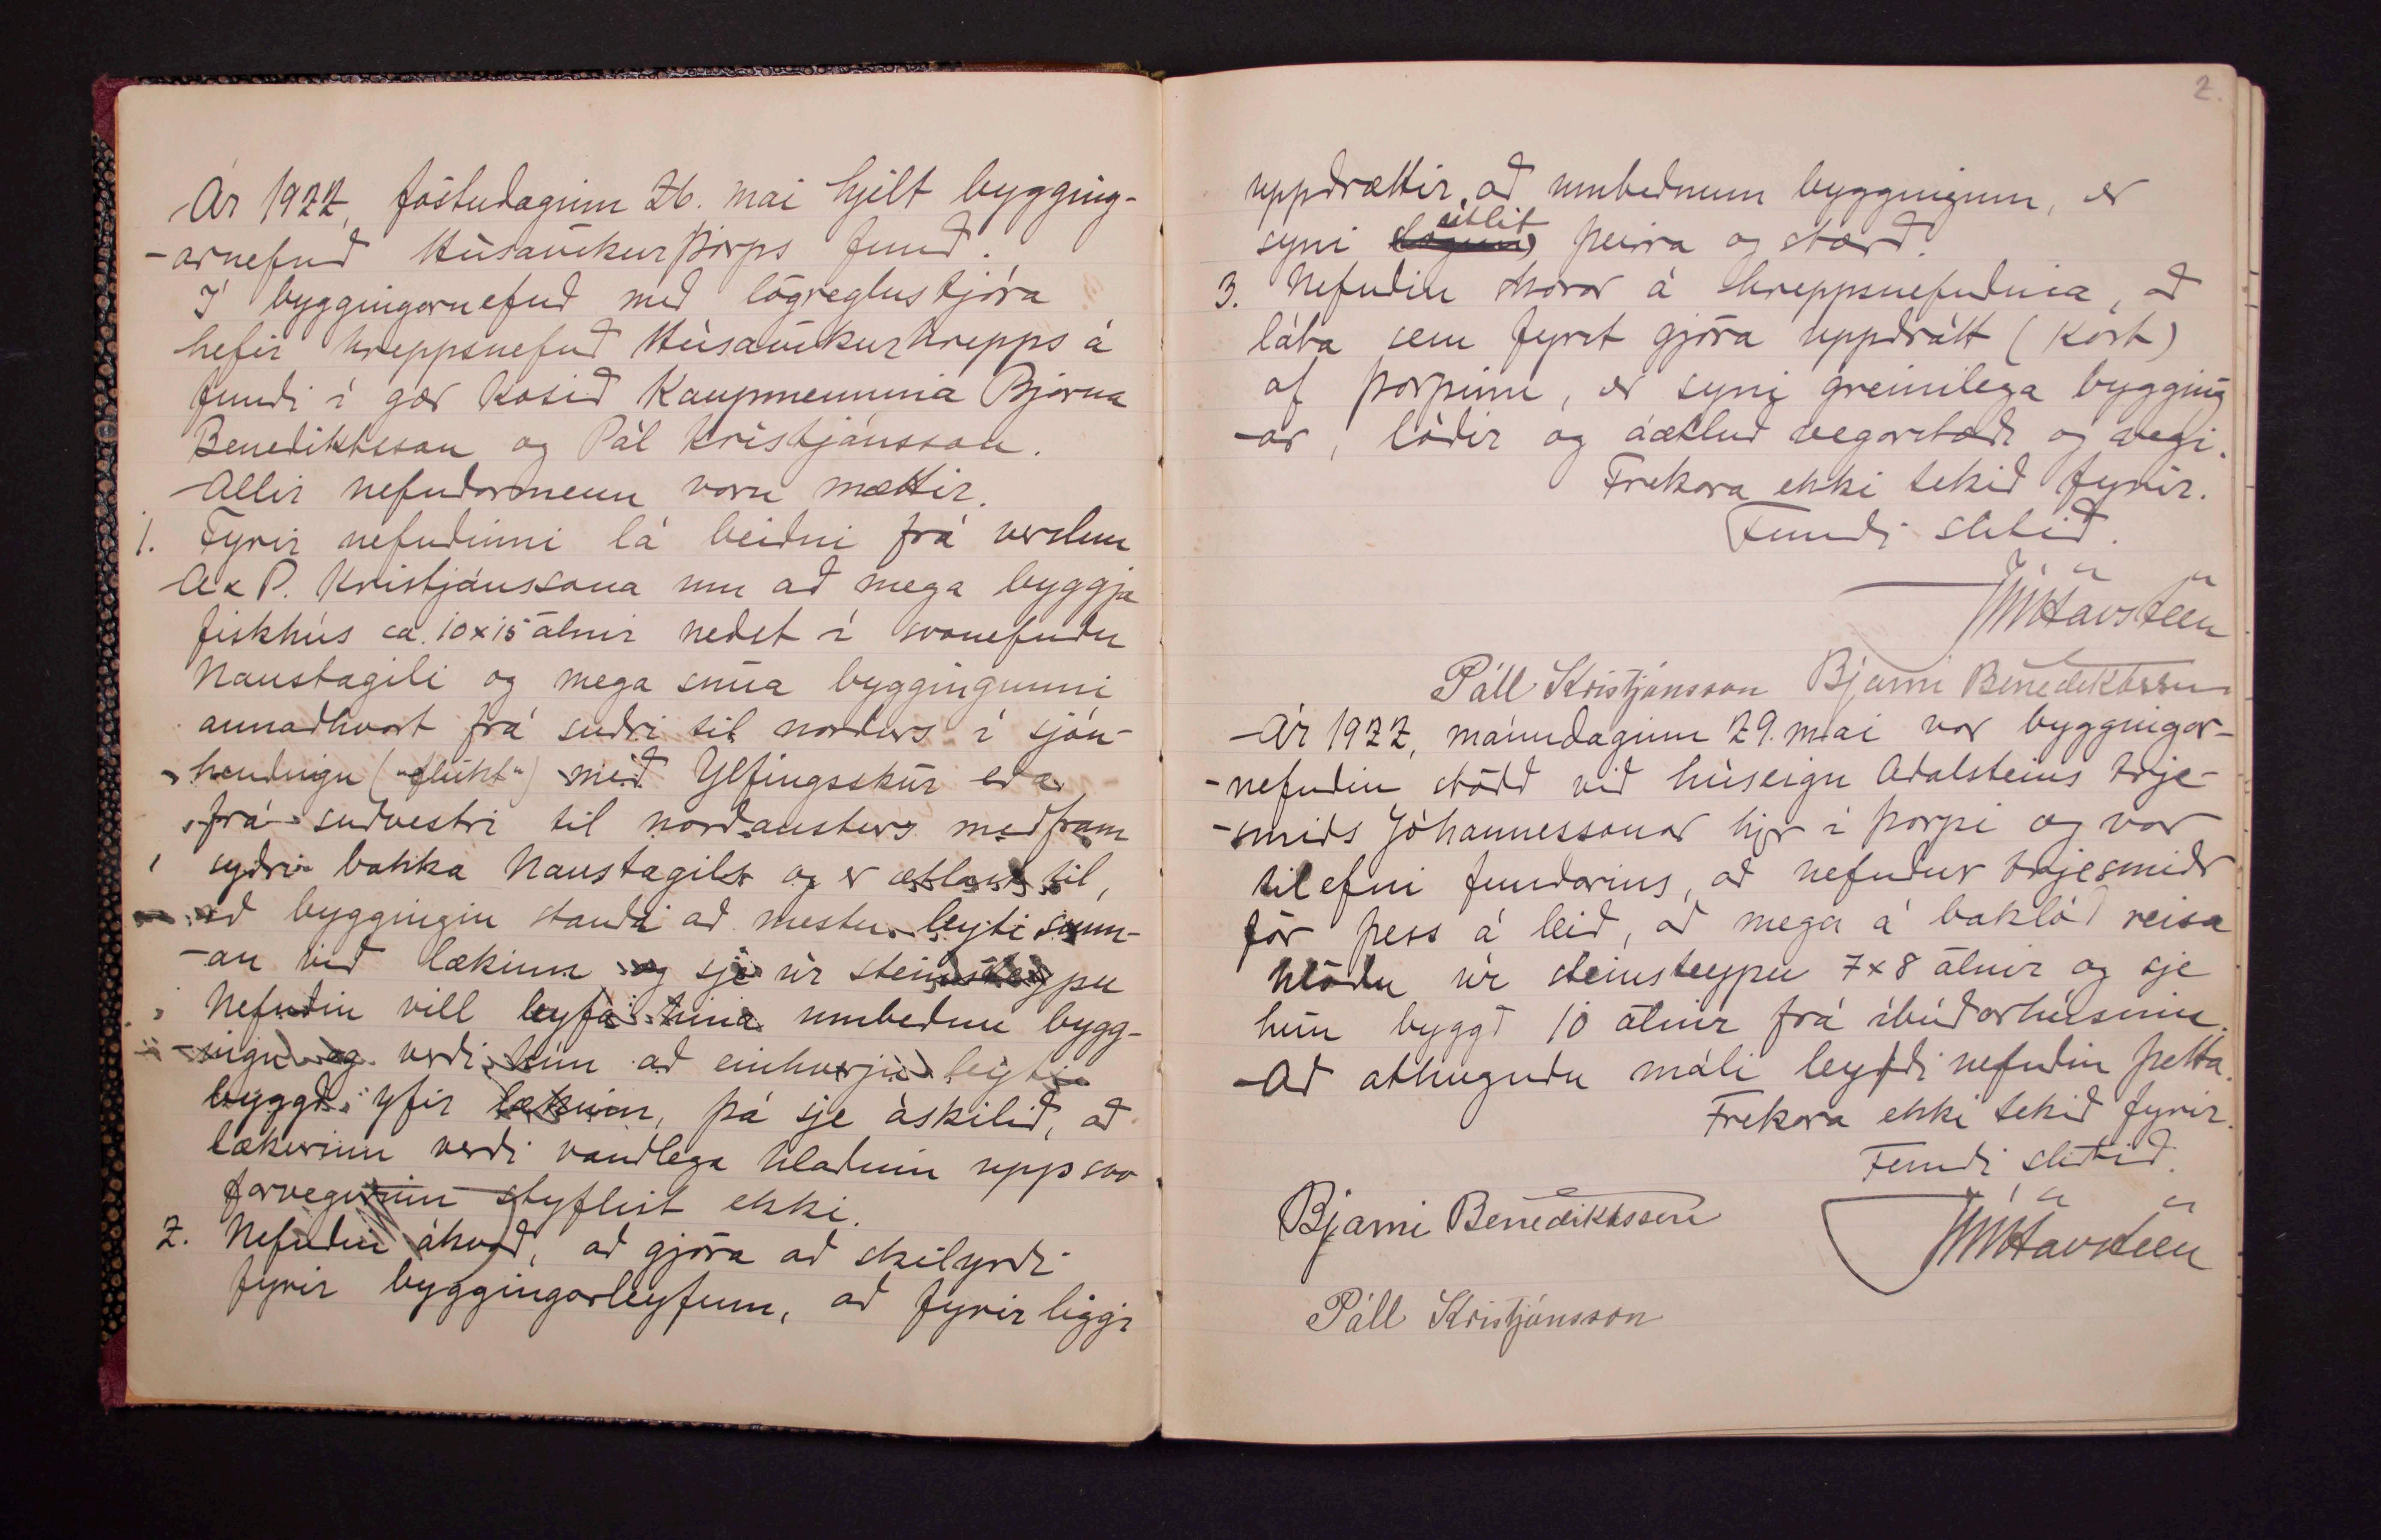 Ár 1922, föstudaginn 26. maí hjelt bygging-
-arnefnd Húsavíkurþorps fund.
Í byggingarnefnd með lögreglustjóra
hefir hreppsnefnd Húsavíkurhrepps á
fundi í gær kosið kaupmennina Bjarna
Benediktsson og Pál Kristjánsson.
Allir nefndarmenn voru mættir.
1. Fyrir nefndinni lá beiðni frá verslun
A & P. Kristjánssona um að mega byggja
fiskhús ca. 10x15 álnir neðst í svonefndu
Naustagili og mega snúa byggingunni
annaðhvort frá suðri til norðurs í sjón-
hendingu ("flukt") með Ylfingsskúr eða
frá suðvestri til norðausturs meðfram
syðri bakka Naustagils og er ætlast til,
að byggingin standi að mestu leyti sunn-
-an við lækinn og sje úr steinsteypu
Nefndin vill leyfa hina umbeðnu bygg-
-ingu og verði hún að einhverju leyti
byggð yfir lækinn, þá sje áskilið, að
lækurinn verði vandlega hlaðinn upp svo
farvegurinn styflist ekki.
2. Nefndin ákvað, að gjöra að skilyrði
fyrir byggingarleyfum, að fyrir liggi
2.
uppdrættir að umbeðnum byggingum, er
útlit
syni þeirra og stærð.
3. Nefndin skorar á hreppsnefndina, að
láta sem fyrst gjöra uppdrátt (kort)
af þorpinu, er syni greinilega bygging
-ar, lóðir og áætluð vegarstæði og vegi.
Frekara ekki tekið fyrir.
Fundi slitið.
JúlHavsteen
Páll Kristjánsson Bjarni Benediktsson
Ár 1922, mánudaginn 29. maí var byggingar-
-nefndin stödd við húseign Aðalsteins trje-
-smiðs Jóhannessonar hjer í þorpi og var
tilefni fundarins, að nefndur trjesmiðr
fór þess á leið, að mega á baklóð reisa
hlöðu úr steinsteypu 7x8 álnir og sje
hún byggð 10 álnir frá íbúðarhúsinu.
Að athuguðu máli leyfði nefndin þetta.
Frekara ekki tekið fyrir.
Fundi slitið.
Bjarni Benediktsson
JúlHavsteen
Páll Kristjánsson